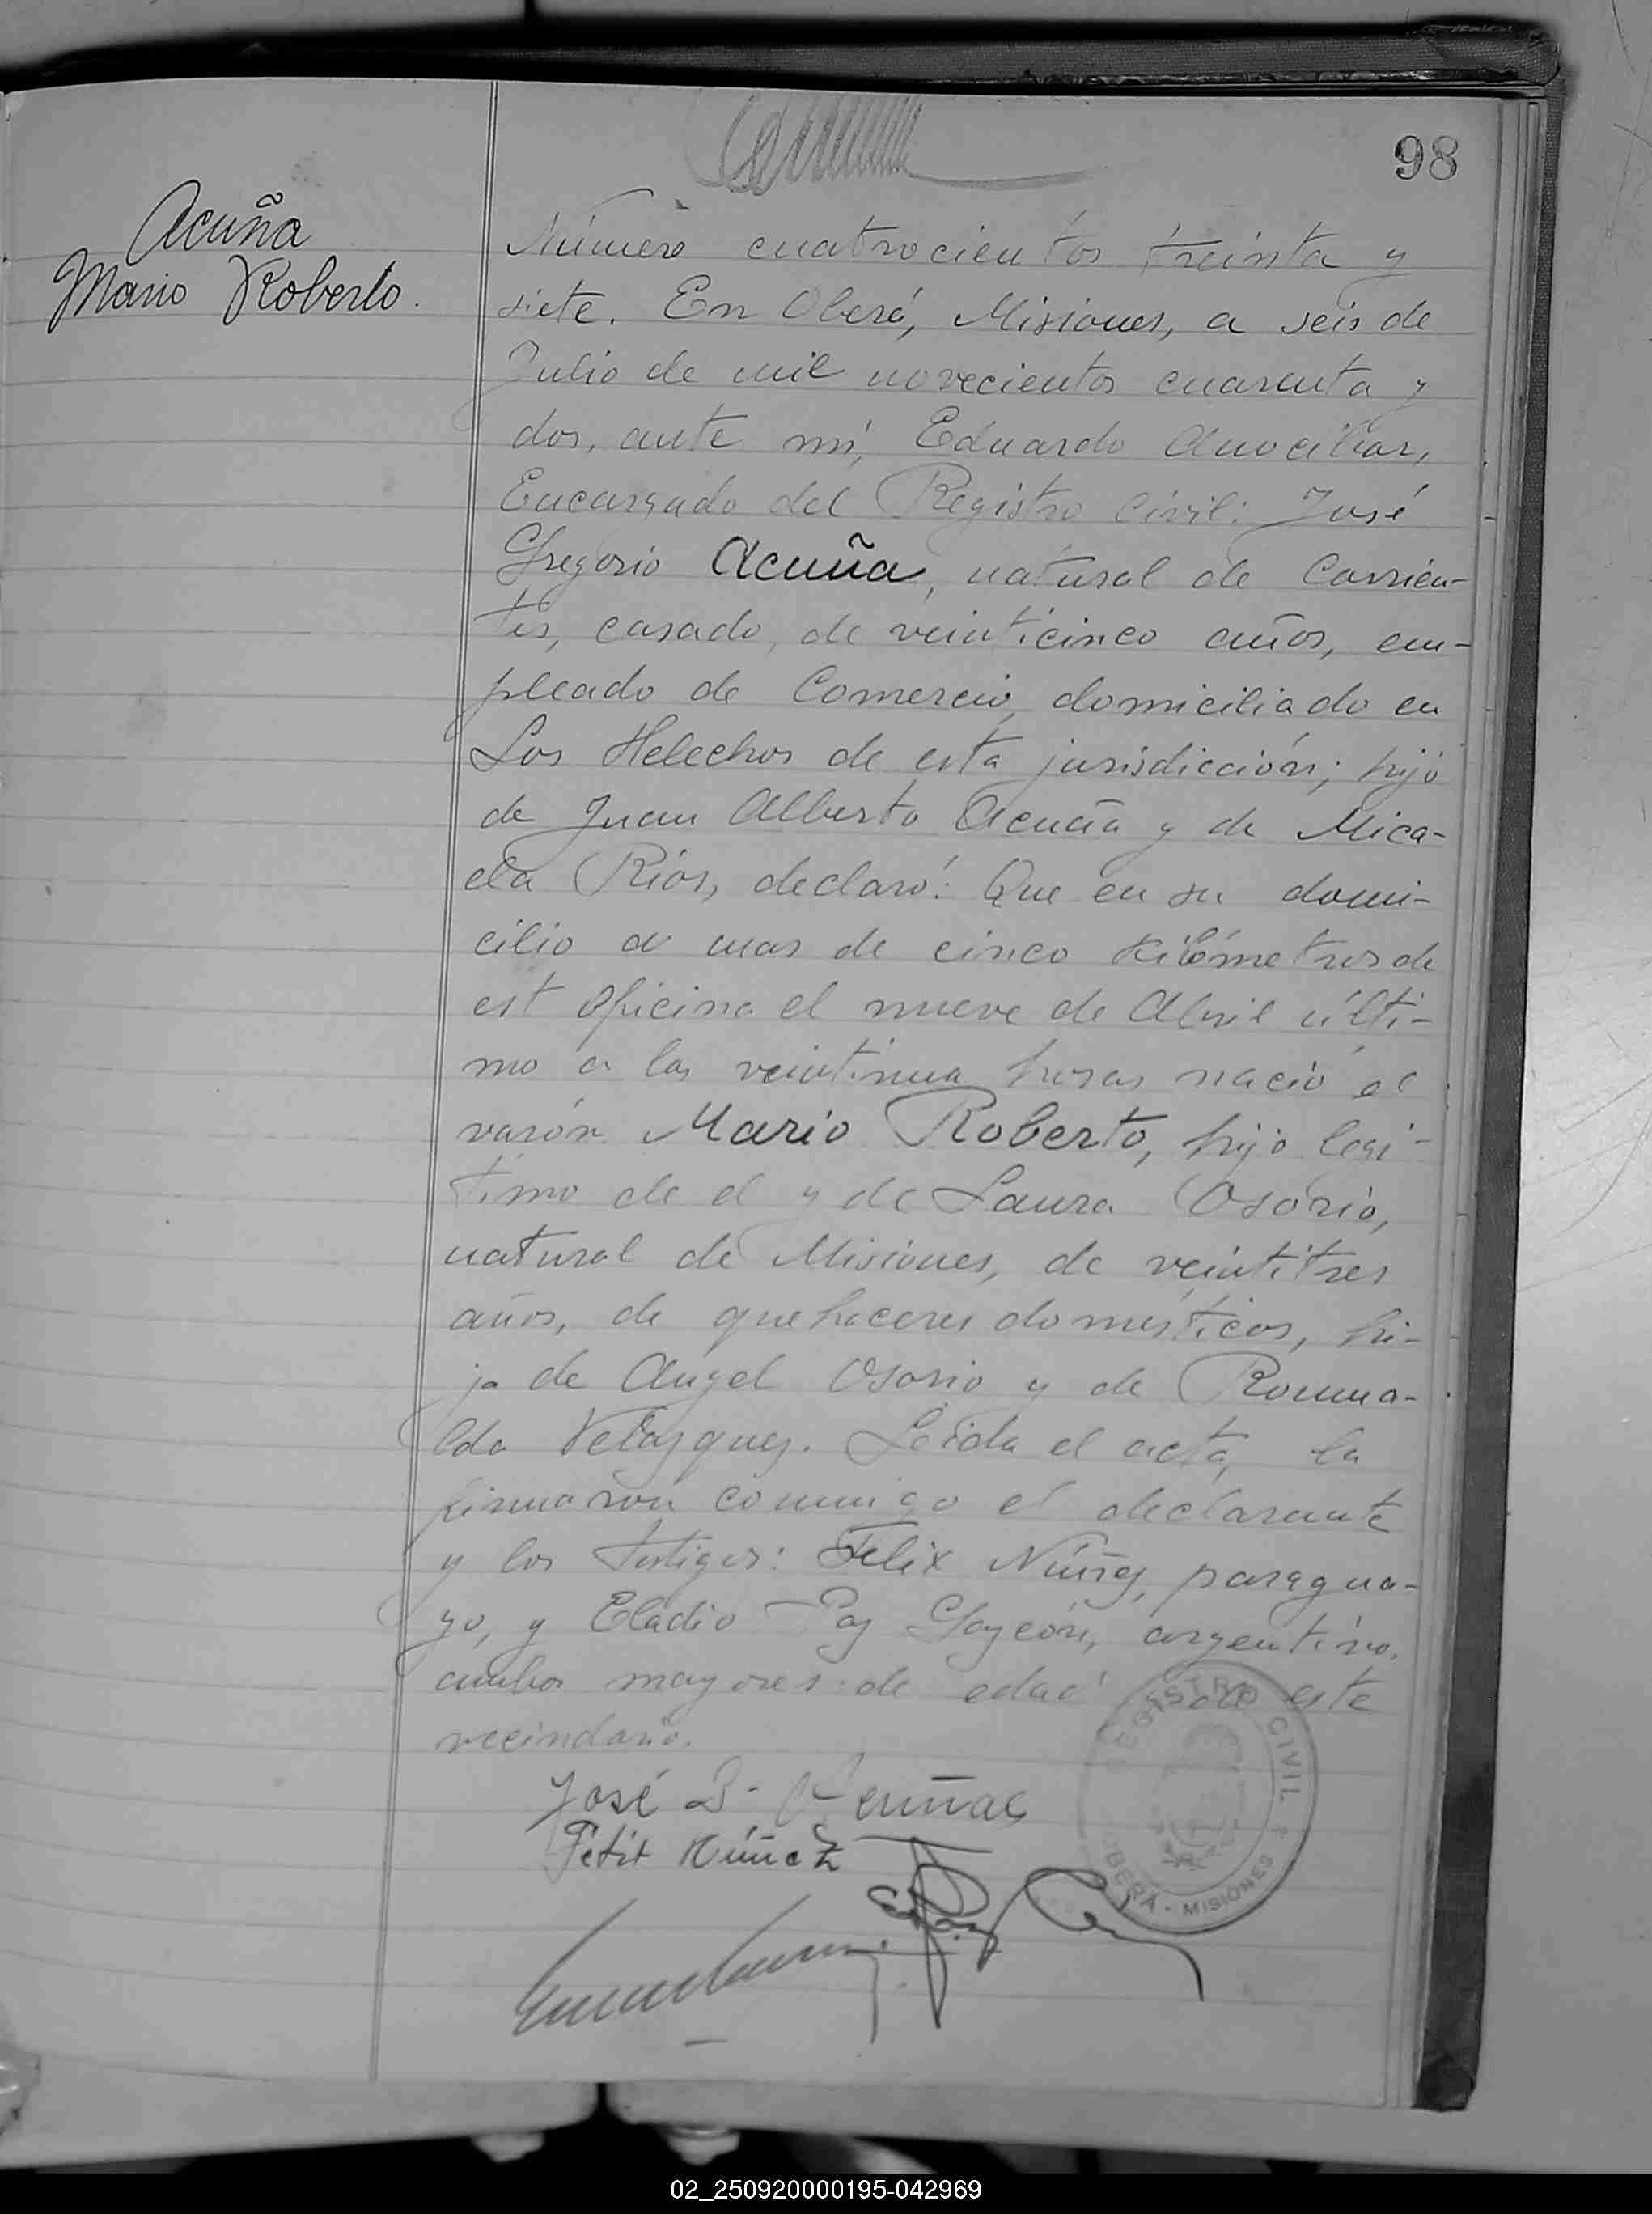 98
Acuña
Mario Roberto.
Número cuatrocientos treinta y
siete. En Oberá, Misiones, a seis de
Julio de mil novecientos cuarenta y
dos, ante mí, Eduardo
Encargado del Registro Civil: José
Gregorio Acuña, natural de Corrien-
tes, casado, de veinticinco años, em-
pleado de Comercio, domiciliado en
Los Helechos de esta jurisdicción; hijo
de Juan Alberto Acuña y de Mica-
ela Ríos, declaró: Que en su domi-
cilio a mas de cinco kilómetros de
est oficina el nueve de Abril últi-
mo a las veintinua horas nació el
varón Mario Roberto, hijo legí-
timo de el y de Laura Osorio,
natural de Misiones, de veintitres
años, de quehaceres domésticos, hi-
ja de Angel Osorio y de Romua-
lda Velazquez. Leida el acta, la
firmaron conmigo el declarante
y los testigos: Felix Núñez, paragua-
yo, y Eladio Paz argentino,
ambos mayores de edad de este
vecindario.
José
Núñez
REGISTRO CIVIL
OBERÁ - MISIONES
02_250920000195-042969